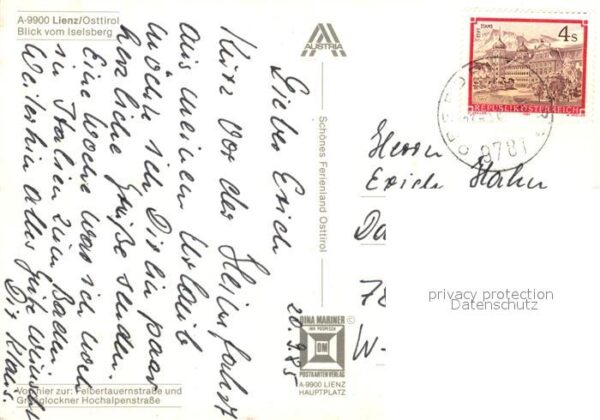 A-9900 Lienz/Osttirol
Blick vom Iselsberg
AUSTRIA
20.9.85
Lieber Erich
Kurz vor der Heimfahrt
aus meinem Urlaub
möchte ich Dir ein paar
herzliche Grüße senden.
Eine Woche war ich noch
in Italien zum Baden.
Weiterhin alles Gute wünscht
Dir Klaus.
Von hier zur: Felbertauernstraße und
Großglockner Hochalpenstraße
Schönes Ferienland Osttirol
DINA MARINER ©
DM
POSTKARTENVERLAG
A-9900 LIENZ
HAUPTPLATZ
4 s
STIFT STAMS
REPUBLIK ÖSTERREICH
9781
Herrn
Erich Hahn
Da
78
W-
privacy protection
Datenschutz